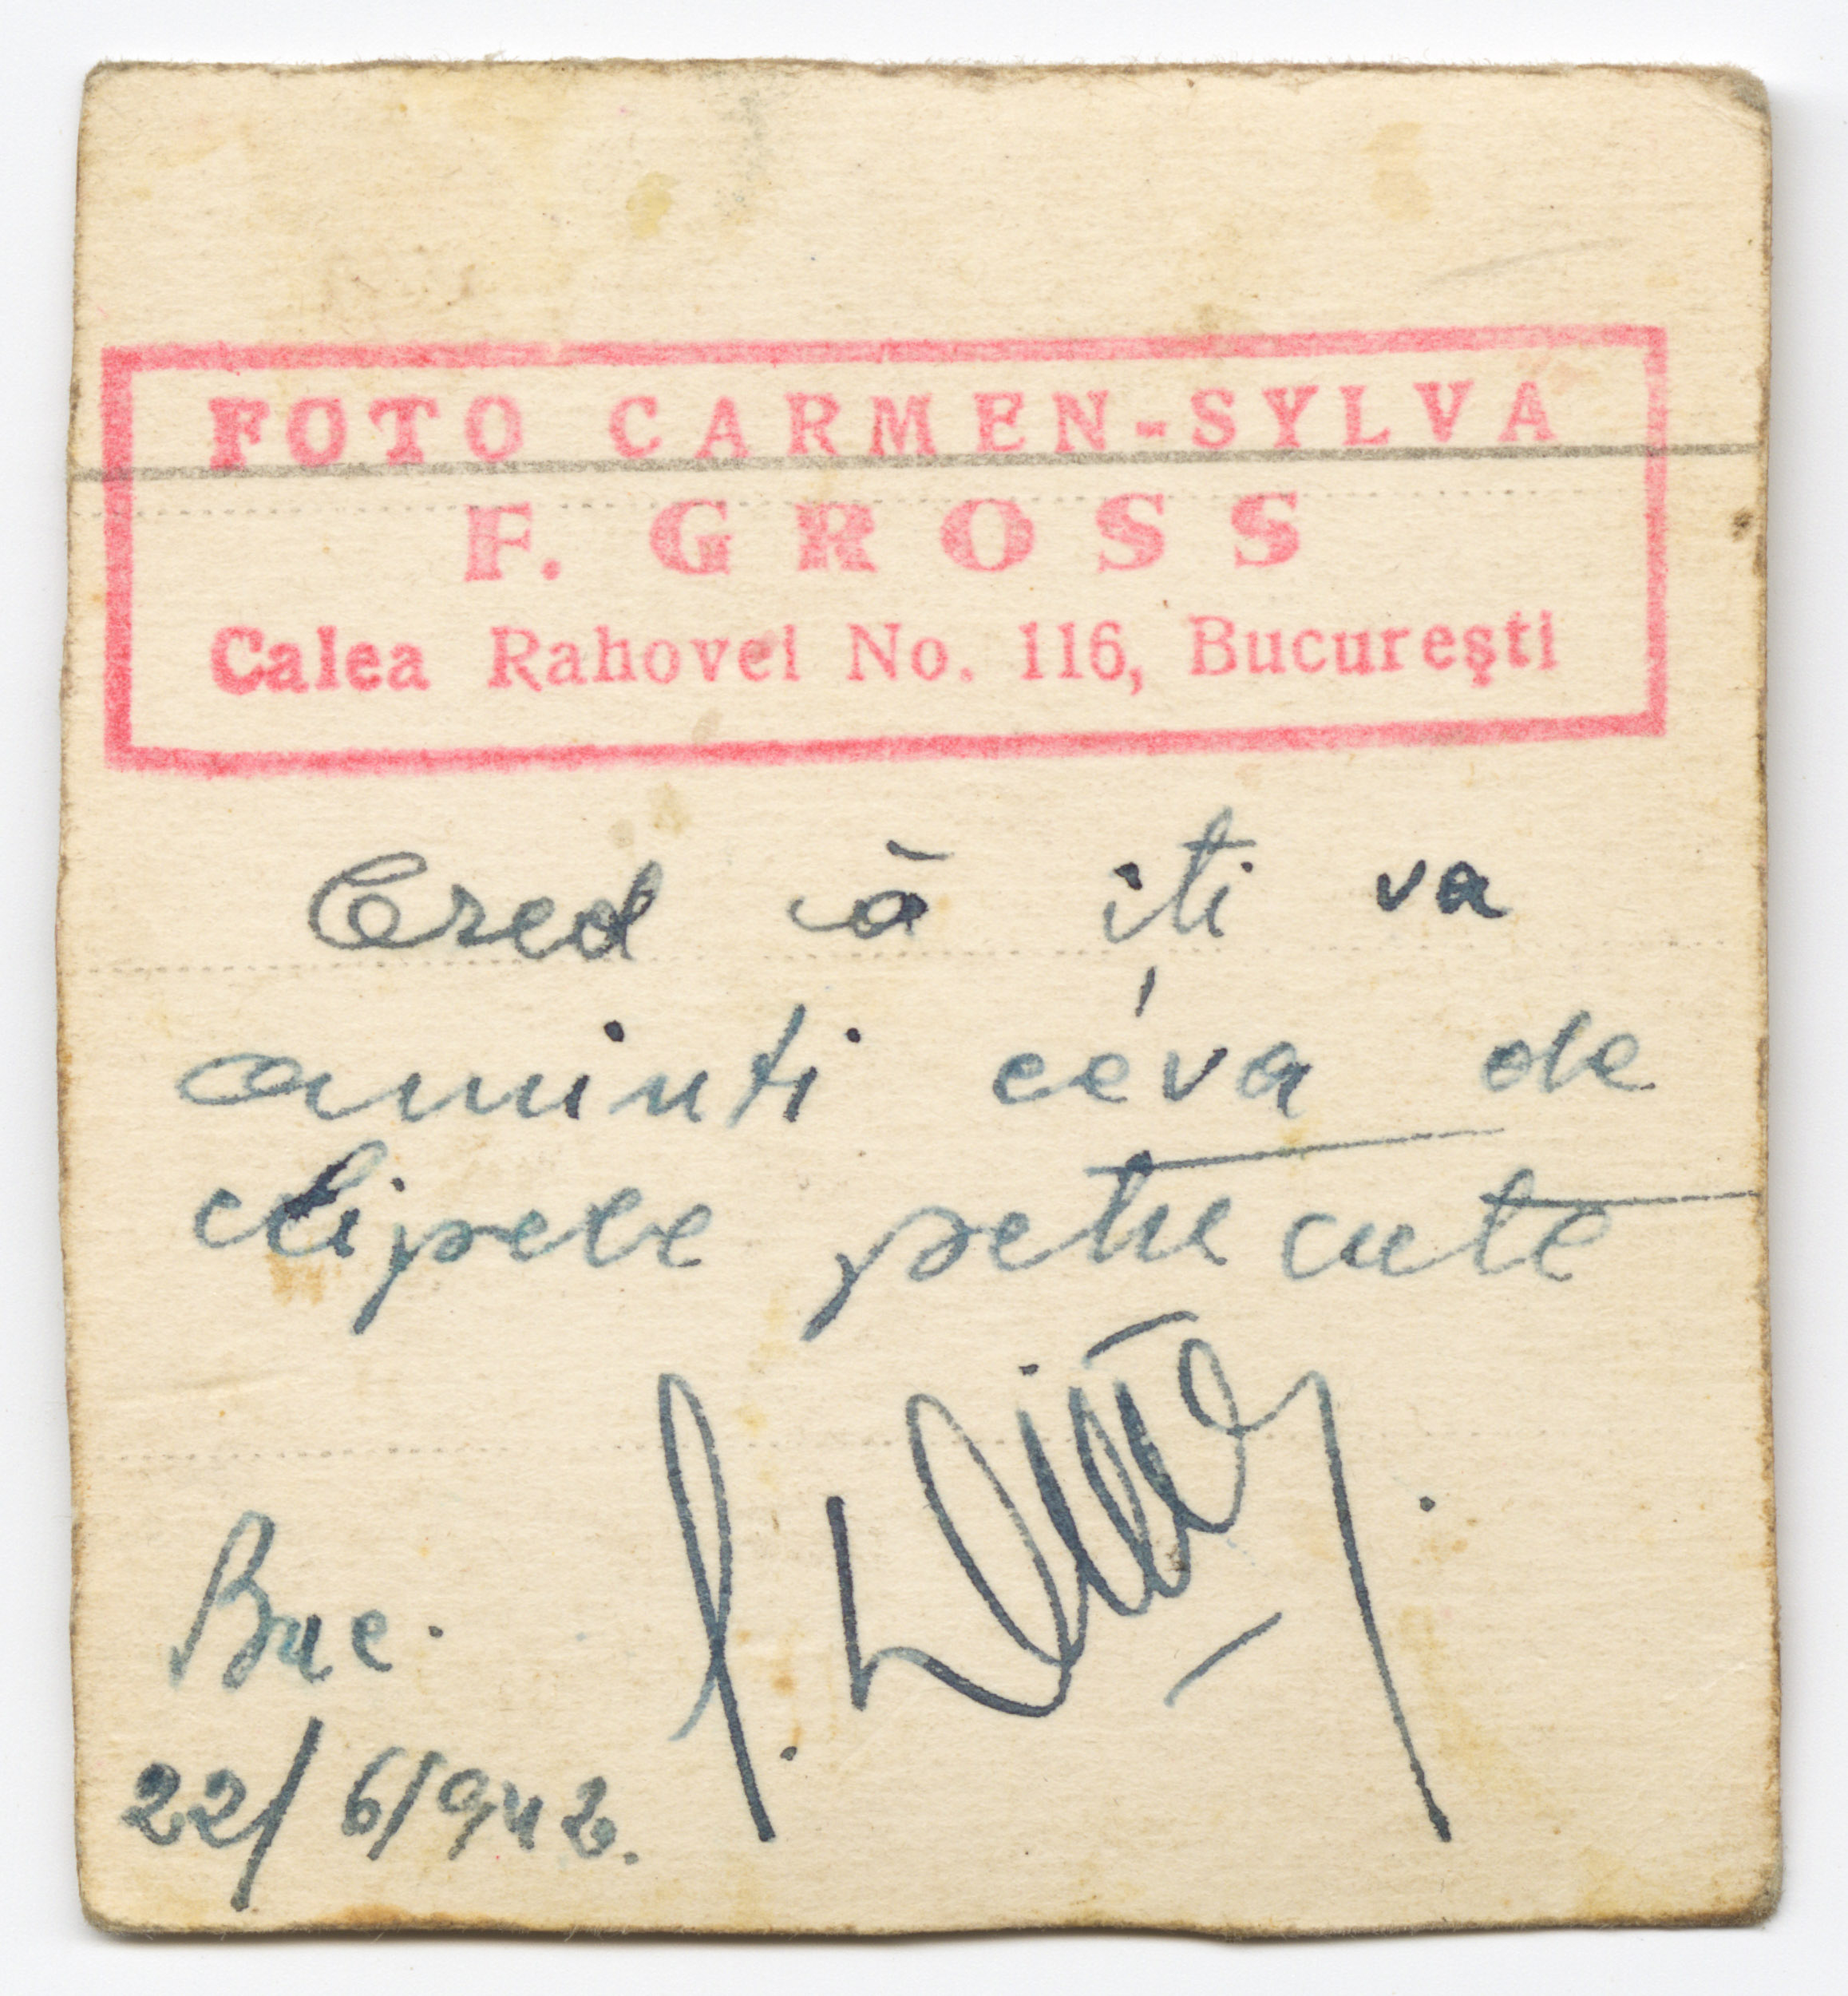 FOTO CARMEN-SYLVA
F. GROSS
Calea Rahovei No. 116, București
Cred că iti va
aminti ceva de
clipele petrecute
Buc.
22/6/942.